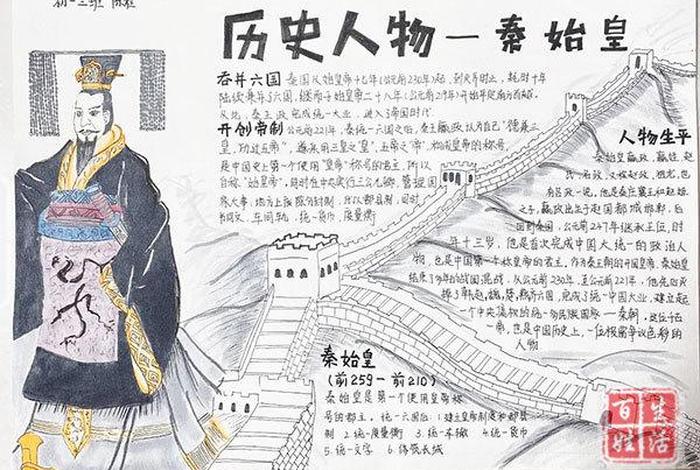 初一三班
历史人物—秦始皇
吞并六国 秦国从始皇帝十七年(公元前230年)起,到灭齐时止,耗时十年
陆续兼并了六国,继而于始皇帝二十八年(公元前219年)开始平定南方百越。
从此,秦王政完成统一大业,进入了帝国时代
开创帝制 公元前221年,秦统一六国之后,秦王嬴政认为自己"德兼三
皇,功过五帝",遂采用三皇之"皇",五帝之"帝",构成皇帝的称号,
是中国史上第一个使用"皇帝"称号的君主,所以
自称"始皇帝",同时在中央实行三公九卿,管理国
家大事,地方上废除分封制,代以郡县制,同时
书同文,车同轨,统一货币,度量衡
人物生平
秦始皇嬴政,嬴姓,赵
氏,名政,又称赵政,祖龙,也
有吕政一说,他是秦庄襄王和赵姬
之子,嬴政出生于赵国都城邯郸,后
回到秦国,公元前247年继承王位,时
年十三岁,他是首次完成中国大统一的政治人
物,也是中国第一个称皇帝的君主,作为秦王朝的开国皇帝,秦始皇
结束了多年的战国混战,从公元前230年至公元前221年,他先后灭
掉了韩,赵,魏,楚,燕,齐六国,完成了统一中国大业,建立起
一个中央集权的统一多民族国家—秦朝,这位千古
一帝,也是中国历史上,一位极富争议色彩的
人物
秦始皇
(前259—前210)
秦始皇是第一个使用皇帝称
号的君主,统一六国后:1.建立皇帝制度和郡县
制 2.统一度量衡 3.统一车辙 4.统一货币
5.统一文字 6.修筑长城
百姓生活